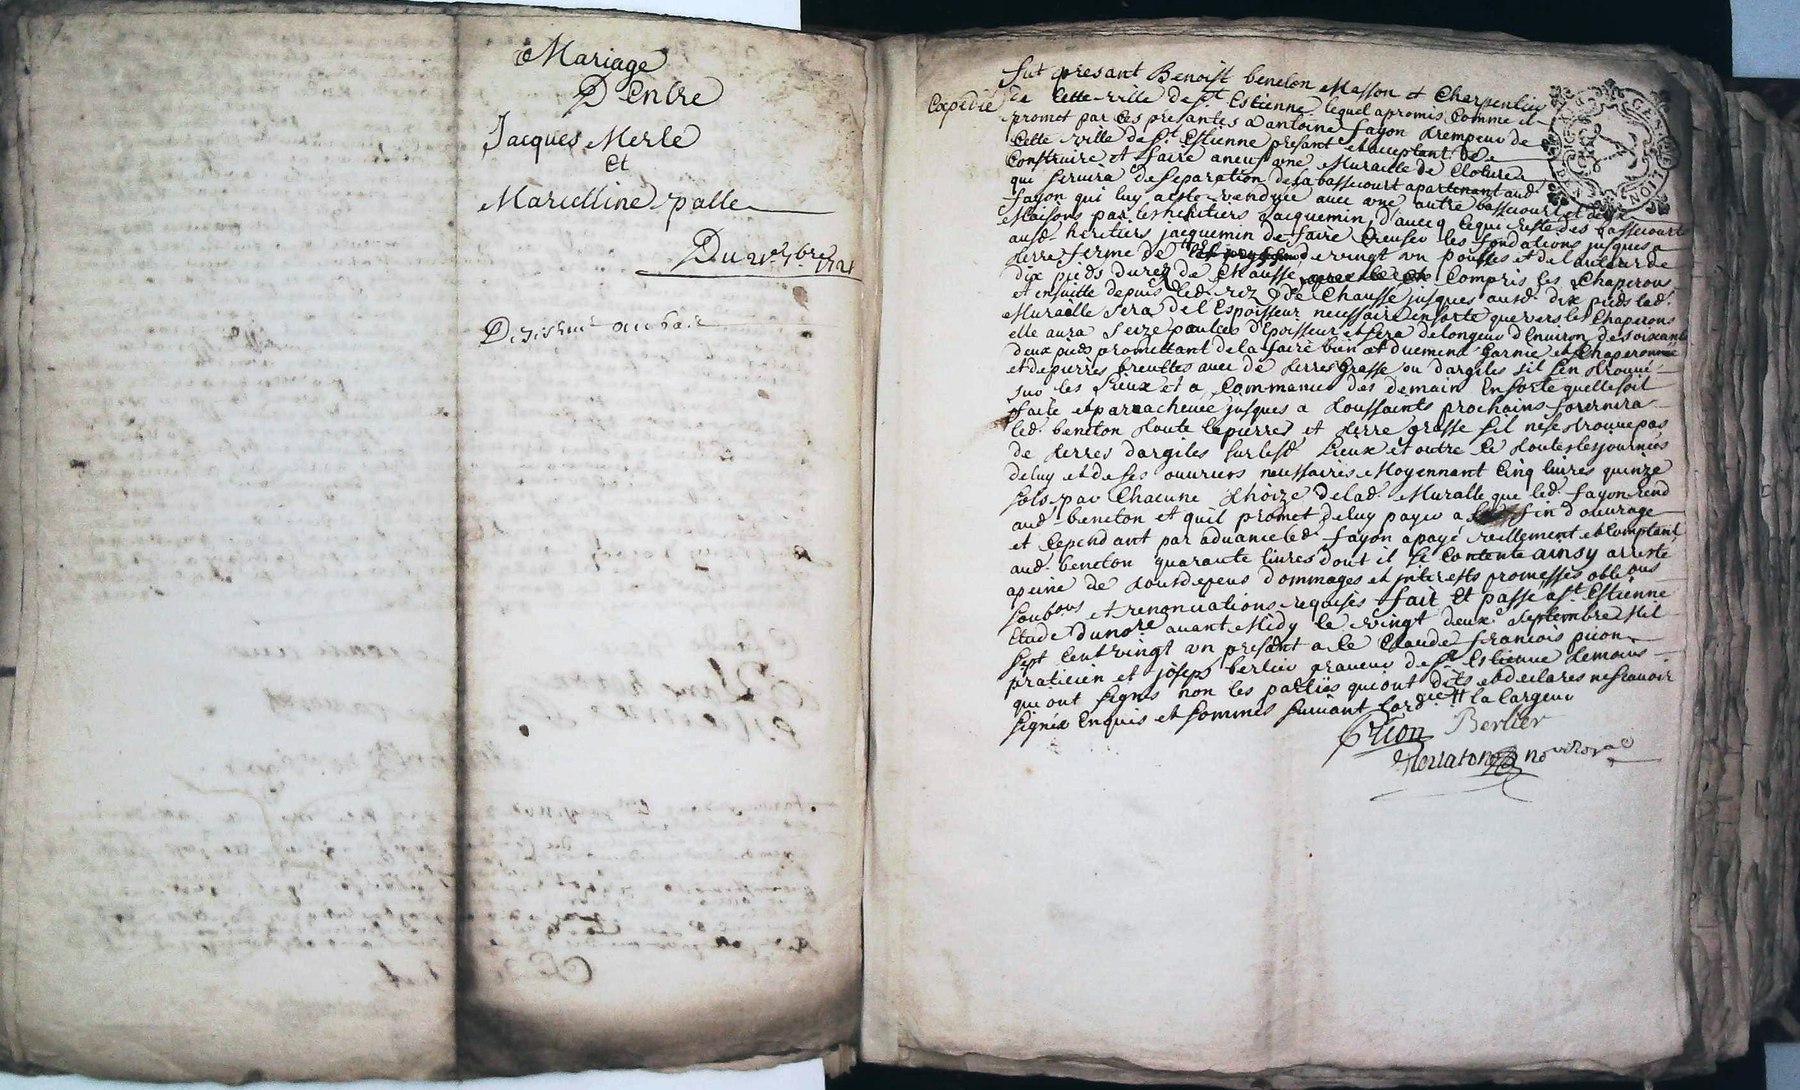 Mariage
D'Entre
Jacques Merle
Et
Marcelline palle
Du 21e 7bre 1721
Expedie
fut presant Benoist beneton Masson et Charpentier
de Cette ville de St Estienne lequel a promis Comme il
promet par Ces presantes a antoine fayon trempeur de
Cette ville de St Estienne presant et acceptant de
Construire et faire a neuf une Muraille de Cloture
qui servira de separation de la bassecourt apartenant aud
fayon qui luy a este vendue avec une autre bassecourt et deux
Maisons par les heritiers Jacquemin d'avecq ce qui reste des bassecourts
ausd heritiers jacquemin de faire Creuser les fondations jusques a
terre ferme de vingt un pousses et de l'auteur de
dix pieds du rez de Chausse Compris les Chaperons
et ensuitte depuis led rez de Chausse jusques ausd dix pieds lad
Muraille sera de l'Espoisseur necessaire en sorte que vers les Chaperons
elle aura seize pouces d'Epoisseur et sera de longeur d'Environ de soixante
deux pieds promettant de la faire bien et duement Garnie et Chaperonnée
et de pierres breuttes avec de terres Grasse ou d'argiles s'il s'en trouve
sur les Lieux et a Commancer des demain En sorte quelle soit
faite et parachevée jusques a toussaints prochains fournira
led beneton toute la pierre et terre grasse s'il ne se trouve pas
de terres d'argiles sur lesd Lieux et outre Ce toutes les journées
de luy et de ses ouvriers necessaires Moyennant Cinq livres quinze
sols par Chacune thoize de lad Muralle que led fayon rend
aud beneton et qu'il promet de luy payer a fin d'ouvrage
et Cependant par advance led fayon a payé reellement et Comptant
aud beneton quarante livres dont il se Contente ainsy arresté
a peine de tous depens dommages et interests promesses obligons
soubons et renonciations requises fait et passé a St Estienne
Etude du nore avant Midy le vingt deuxe septembre Mil
sept Cent vingt un presant a Ce Claude francois pion
praticien et joseph berlier graveur de St Estienne temoins
qui ont signés non les parties qui ont dits et declarés ne scavoir
signer Enquis et sommés suivant l'ordce # la largeur
Pion Berlier